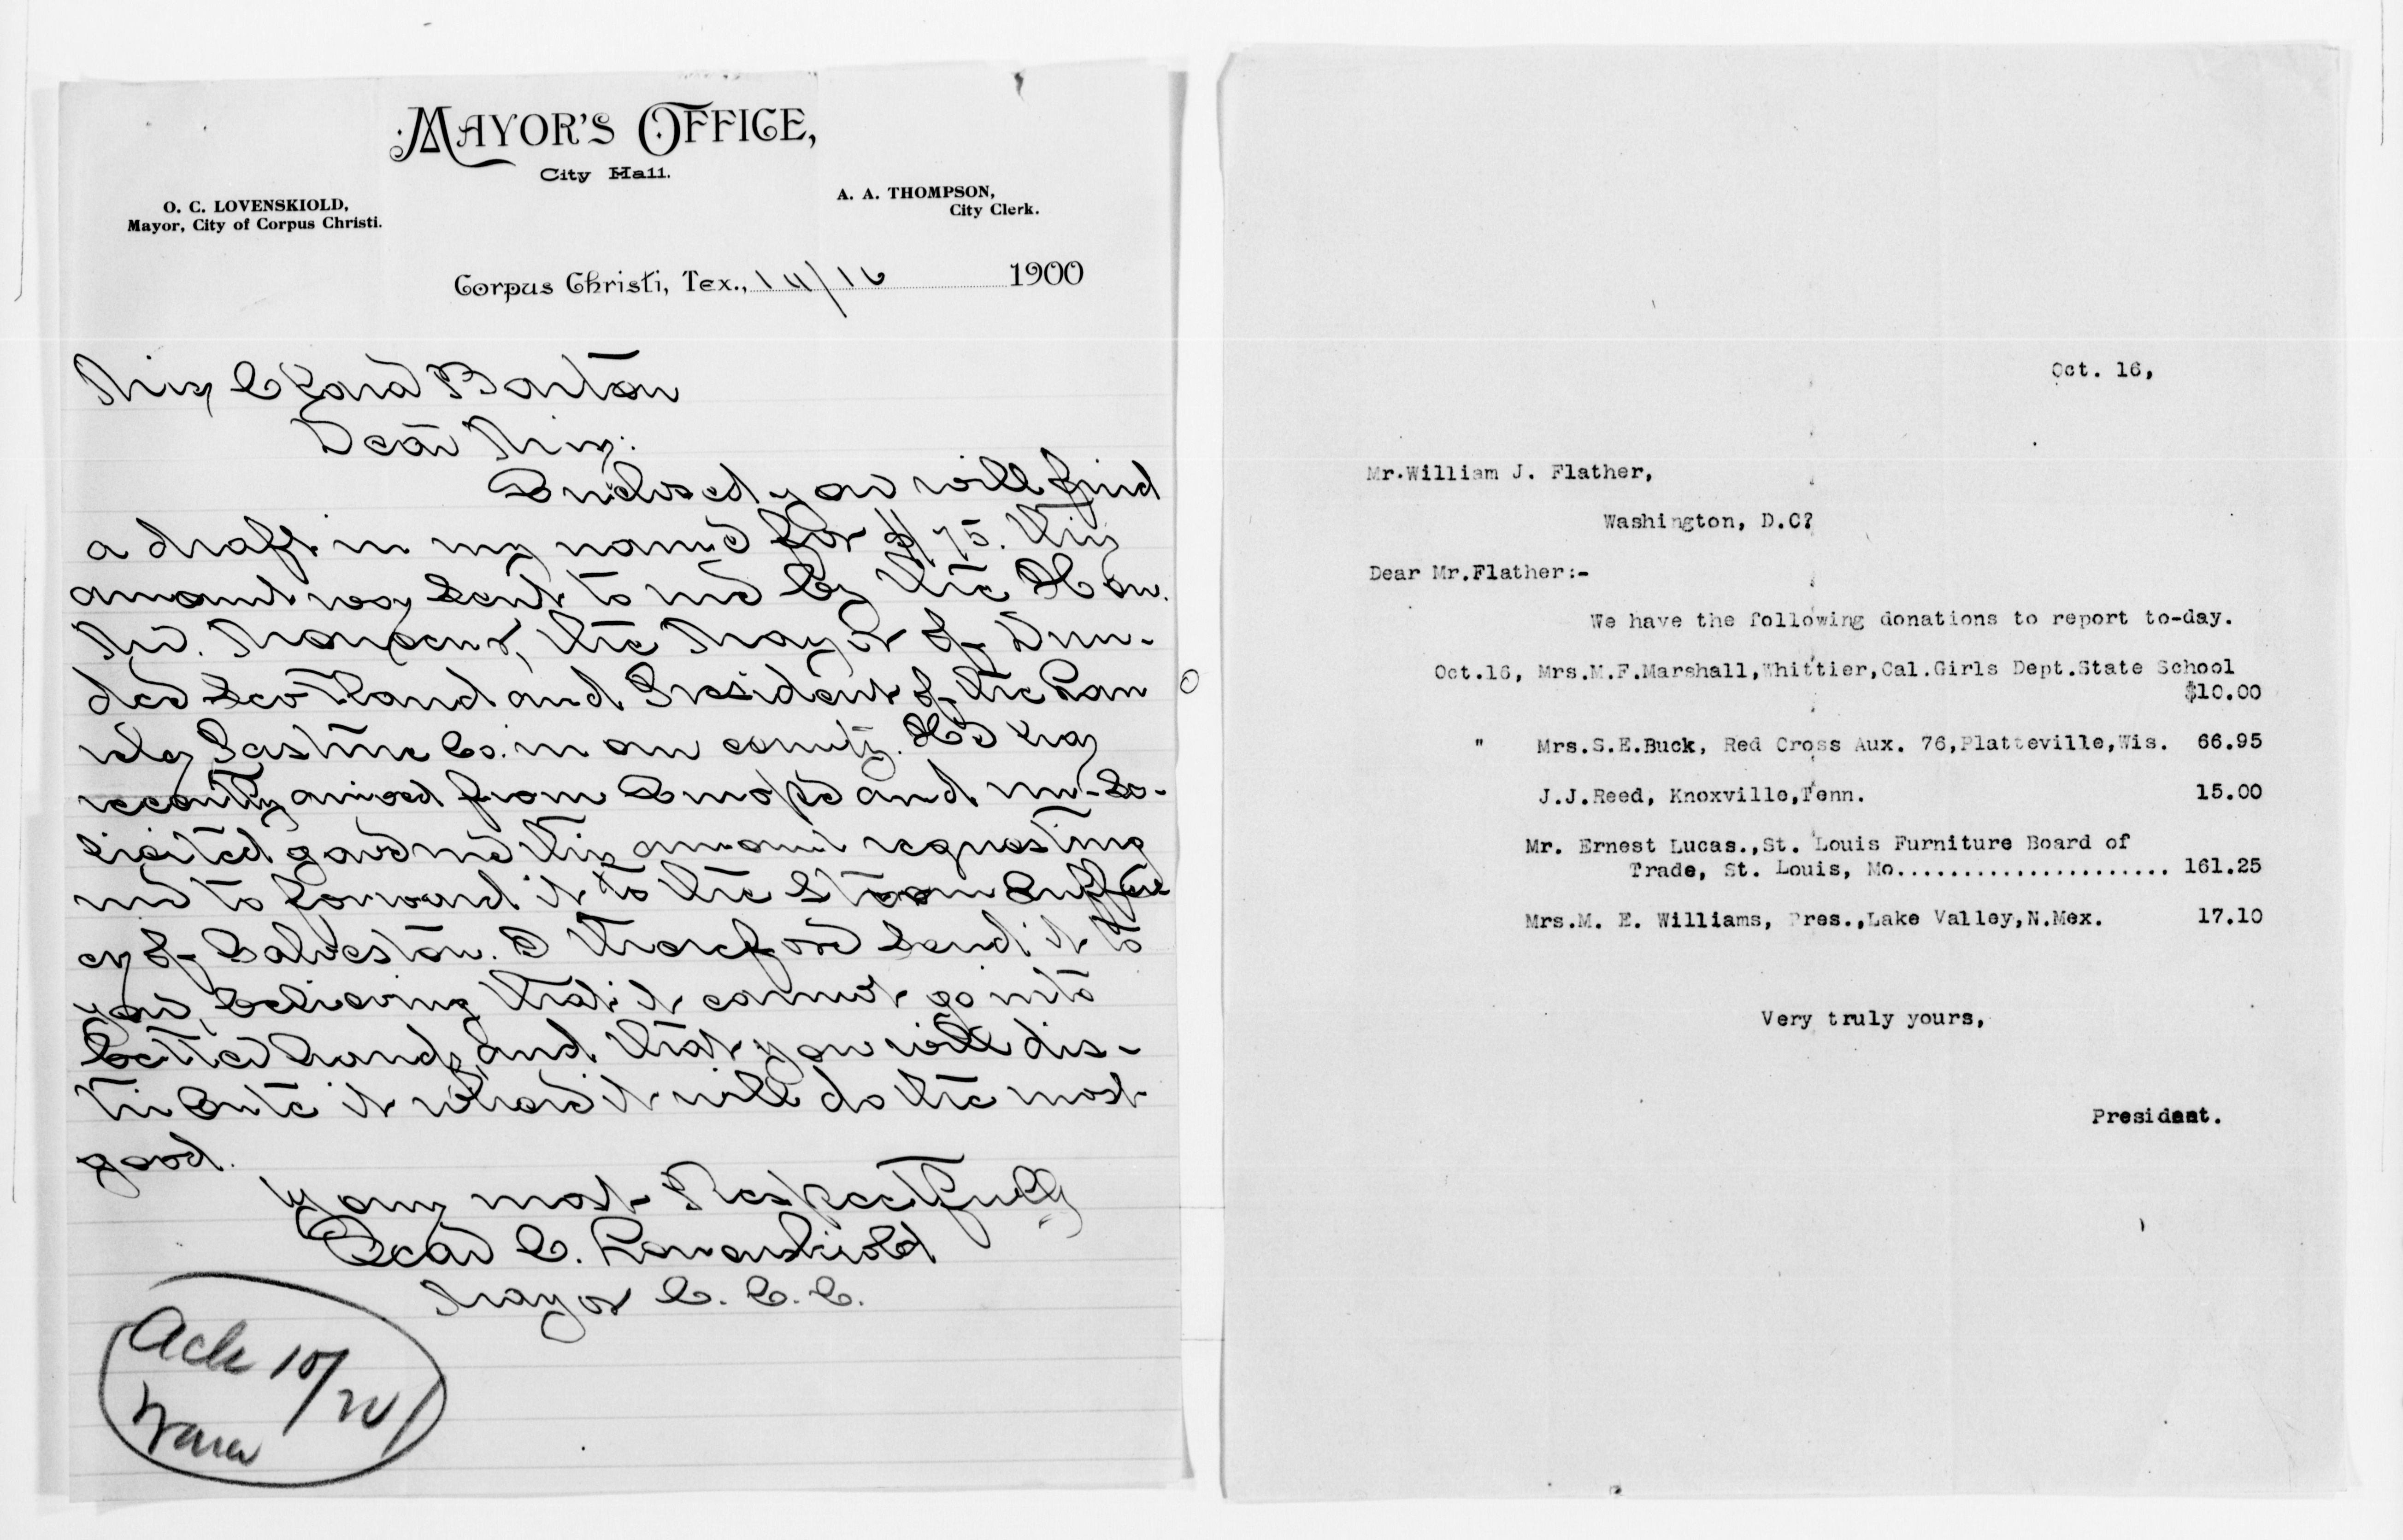 MAYOR'S OFFICE,
City Hall.
O. C. LOVENSKIOLD,
Mayor, City of Corpus Christi.
A. A. THOMPSON,
City Clerk.
Corpus Christi, Tex., 10/16 1900
Miss Clara Barton
Dear Miss:
Enclosed you will find
a draft in my name for $75. this
amount was sent to me by the Hon.
Mr. the Mayor of Dun-
dee Scotland and President of the
Pasture Co. in our county. He has
recently arrived from Europe and un-so-
licited gave me this amount requesting
me to forward it to the storm suffer
ers of Galveston. I therefore send it to
you, believing that it cannot go into
better hands, and that you will dis-
tribute it where it will do the most
good.
Yours most Respectfully
Oscar C. Lovenskiold
Mayor C. C. C.
Ack 10/20
Oct. 16,
Mr.William J. Flather,
Washington, D.C?
Dear Mr.Flather:-
We have the following donations to report to-day.
Oct.16, Mrs.M.F.Marshall,Whittier,Cal.Girls Dept.State School
$10.00
" Mrs.S.E.Buck, Red Cross Aux. 76,Platteville,Wis. 66.95
J.J.Reed, Knoxville,Tenn. 15.00
Mr. Ernest Lucas.,St. Louis Furniture Board of
Trade, St. Louis, Mo..................... 161.25
Mrs.M. E. Williams, Pres.,Lake Valley,N.Mex. 17.10
Very truly yours,
President.